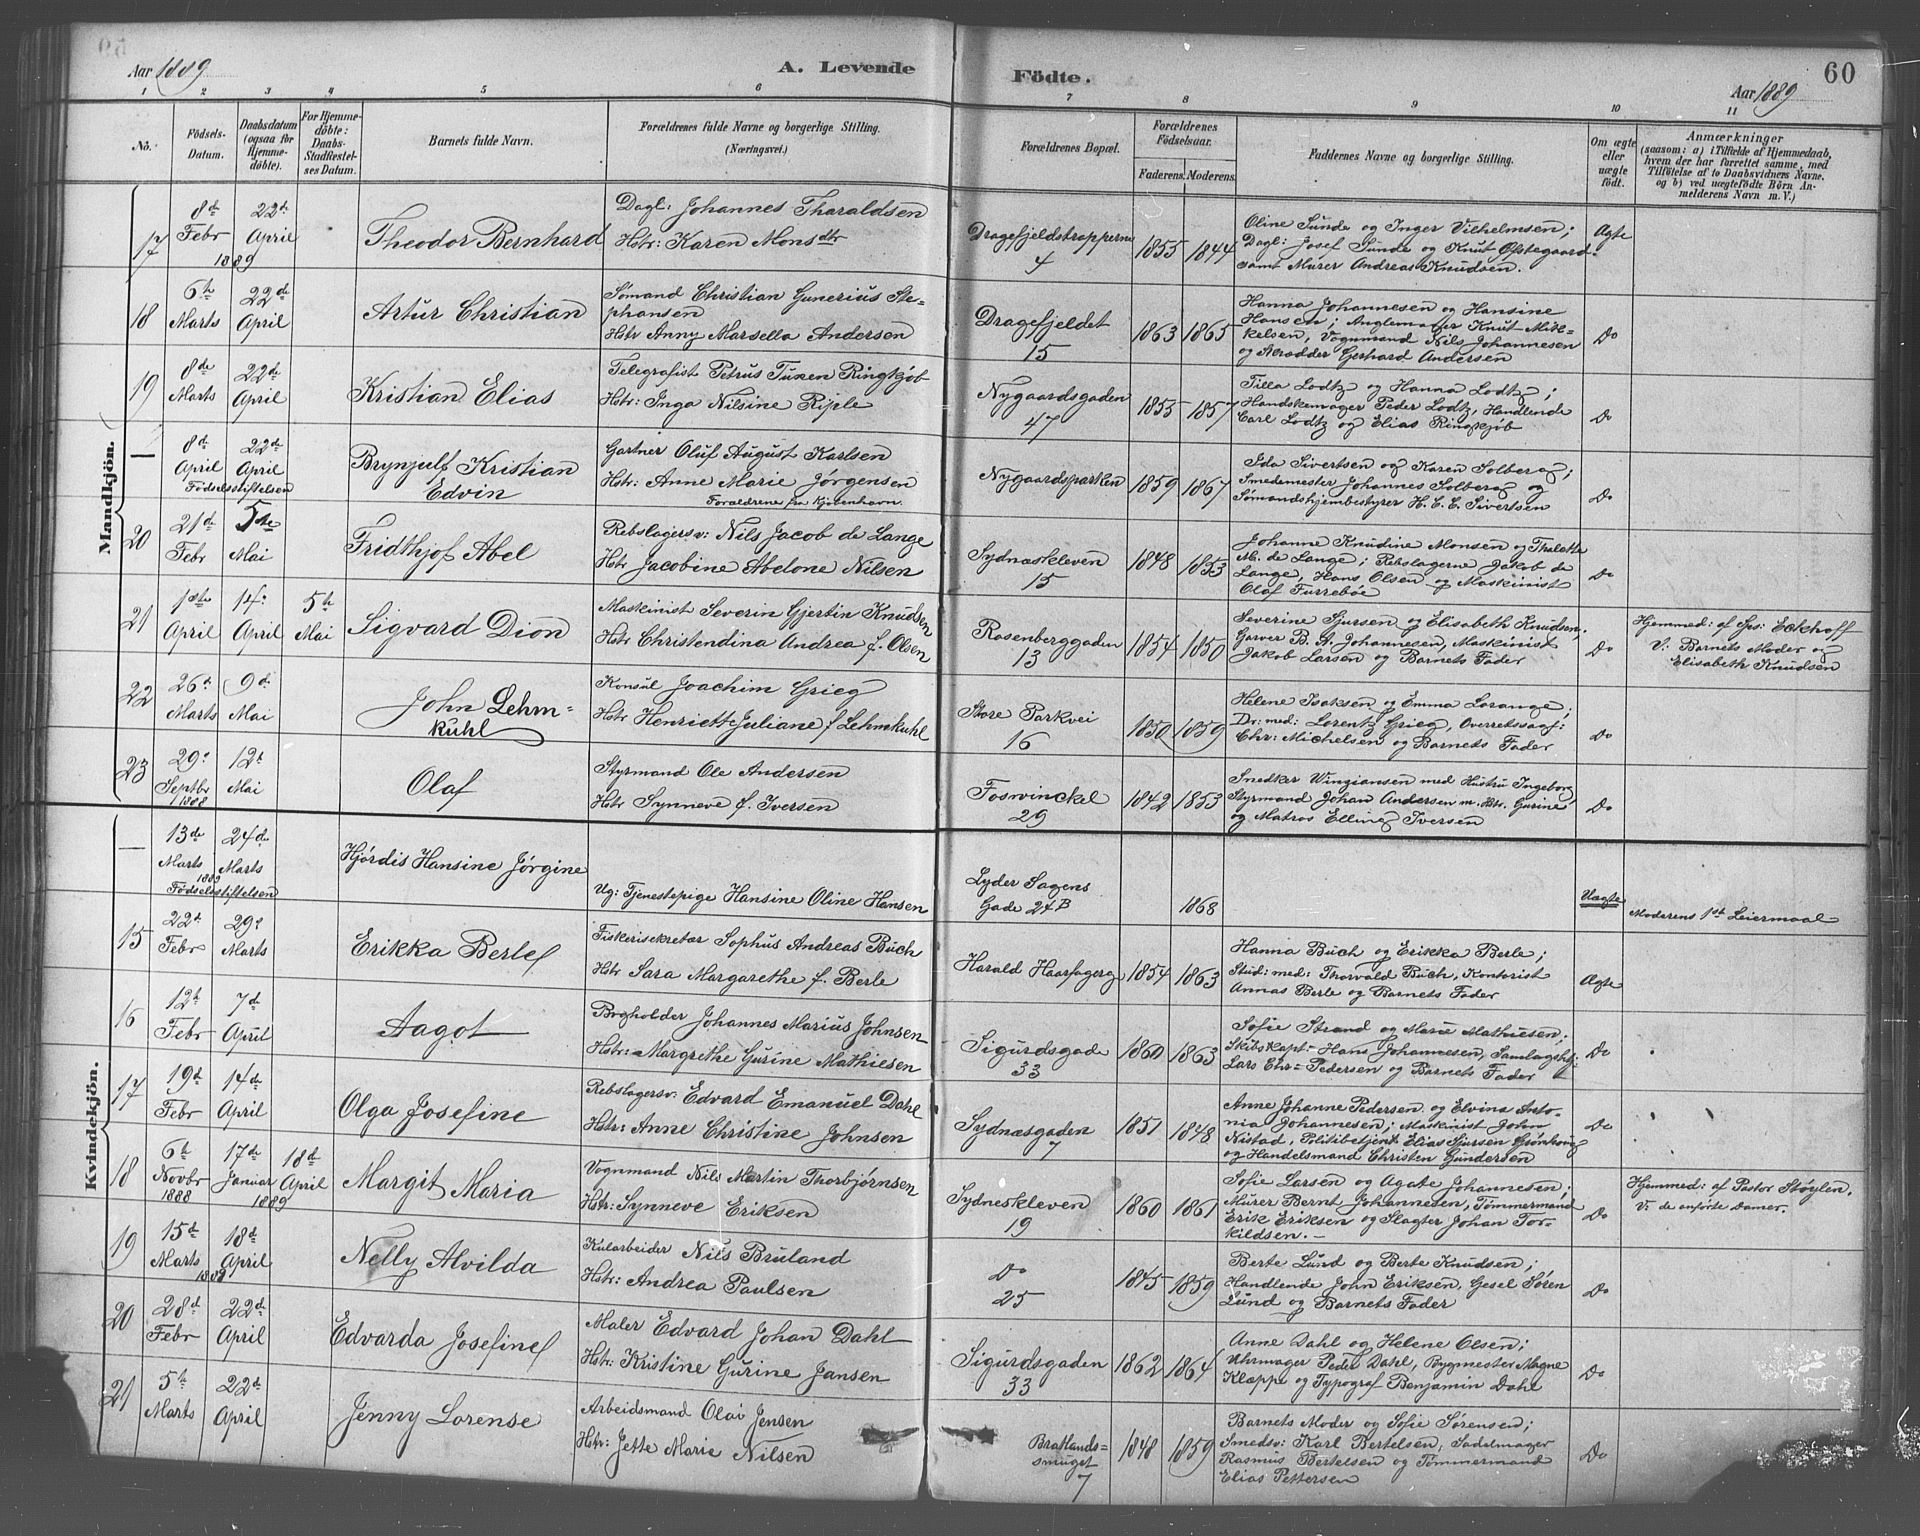 Aar 1889
A. Levende
Födte.
60
Aar 1889
1 2 3 4 5 6 7 8 9 10 11
No.
Födsels-
Datum.
Daabsdatum
(ogsaa for
Hjemme-
döbte).
For Hjemme-
döbte:
Daabs-
Stadfæstel-
ses Datum.
Barnets fulde Navn.
Forældrenes fulde Navne og borgerlige Stilling.
(Næringsvei.)
Forældrenes Bopæl.
Forældrenes
Födselsaar.
Faderens. Moderens.
Faddernes Navne og borgerlige Stilling.
Om ægte
eller
uægte
födt.
Anmærkninger
(saasom: a) i Tilfælde af Hjemmedaab,
hvem der har forrettet samme, med
Tilföielse af to Daabsvidners Navne,
og b) ved uægtefödte Börn An-
melderens Navn m. V.)
Mandkjön.
17
8de Febr 1889
22de April
Theodor Bernhard
Dagl: Johannes Tharaldsen
Hstr: Karen Monsdtr
Dragefjeldstrapperne
4
1855 1844
Oline Sunde og Inger Vilhelmsen;
Dagl: Josef Sunde og Knut Østegaard
samt Murer Andreas Knudsen.
Ægte
18
6te Marts
22de April
Artur Christian
Sømand Christian Gunerius Ste-
phansen
Hstr Anny Marsella Andersen
Dragefjeldet
15
1863 1865
Hanna Johannesen og Hansine
Hansen; Anglemager Knut Mik-
kelsen, Vognmand Nils Johannesen
og Gerhard Andersen
Do
19
8de Marts
22de April
Kristian Elias
Telegrafist Petrus Tuxen Ringkjøb
Hstr: Inga Nilsine Riple
Nygaardsgaden
47
1855 1857
Tilla Lodtz og Hanna Lodtz;
Handskemager Peder Lodtz, Handlende
Carl Lodtz og Elias Ringkjøb
Do
—
8de April
22de April
Fødselsstiftelsen
Brynjulf Kristian
Edvin
Gartner Oluf August Karlsen
Hstr: Anne Marie Jørgensen
Forældrene fra Kjøbenhavn.
Nygaardsparken
1859 1867
Ida Sivertsen og Karen Solberg;
Smedemester Johannes Solberg og
Sømandshjembestyrer H. C. E. Sivertsen
Do
20
21de Febr
5te Mai
Fridthjof Abel
Rebslagersv: Nils Jacob de Lange
Hstr Jacobine Abelone Nilsen
Sydnæskleven
15
1848 1853
Johanne Knudine Monsen og Thalette
M. de Lange; Rebslagerne Jakob de
Lange, Hans Olsen og Maskinist
Olaf Furrebøe
Do
21
1ste April
14. April
5te Mai
Sigvard Dion
Maskinist Severin Gjertin Knudsen
Hstr Christendina Andrea f. Olsen
Rosenberggaden
13
1854 1850
Severine Sjursen og Elisabeth Knudsen;
Garver B. A. Johannesen, Maskinist
Jakob Larsen og Barnets Fader
Do
Hjemmed: af Eckhoff
V: Barnets Moder og
Elisabeth Knudsen
22
26d Marts
9d Mai
John Lehm-
kuhl
Konsul Joachim Grieg
Hstr Henriette Juliane f Lehmkuhl
Store Parkvei
16
1850 1859
Helene Isaksen og Emma Lorange;
Dr: med: Lorentz Grieg, Overretssagf:
Chr: Michelsen og Barnets Fader
Do
23
29. Septbr 1888
12t Mai
Olaf
Styrmand Ole Andersen
Hstr Synneve f. Iversen
Foswinckel
29
1842 1853
Snedker Wingiansen med Hustru Ingeborg
Styrmand Johan Andersen m. Hstr. Gurine
og Matros Elling Iversen
Do
Kvindekjön.
—
13de Marts 1889
24de Marts
Fødselsstiftelsen
Hjørdis Hansine Jørgine
Ug: Tjenestepige Hansine Oline Hansen
Lyder Sagens
Gade 24B
1868
Uægte
Moderens 1st Leiermaal
15
22d Febr
29d Marts
Erikka Berle
Fiskerisekretær Sophus Andreas Buch
Hstr Sara Margarethe f. Berle
Harald Haarfagerg
1854 1863
Hanna Buch og Erikka Berle;
Stud: med: Thorvald Buch, Kontorist
Annas Berle og Barnets Fader
Ægte
16
12t Febr
7d April
Aagot
Brgholder Johannes Marius Johnsen
Hstr: Margrethe Gurine Mathiesen
Sigurdsgade
33
1860 1863
Sofie Strand og Marie Mathiesen;
Skibskapt: Hans Johannesen, Samlagsbetj:
Lars Chr= Pedersen og Barnets Fader
Do
17
19d Febr
14de April
Olga Josefine
Rebslagersv. Edvard Emanuel Dahl
Hstr: Anne Christine Johnsen
Sydnæsgaden
7
1851 1848
Anne Johanne Pedersen og Elvina Anto-
nia Johannesen; Maskinist John
Nistad, Politibetjent Elias Sjursen
og Handelsmand Christen Gundersen
Do
18
6te Novbr 1888
17de Januar 1889
18de April
Margit Maria
Vognmand Nils Martin Thorbjørnsen
Hstr: Synneve Eriksen
Sydneskleven
19
1860 1861
Sofie Larsen og Agate Johannesen;
Murer Bernt Johannesen, Tømmermand
Erik Eriksen og Slagter Johan Tor-
kildsen.
Do
Hjemmed: af Pastor Støylen.
V: de anførte Damer.
19
15d Marts 1889
18d April
Nelly Alvilda
Kularbeider Nils Bruland
Hstr: Andrea Paulsen
Do
25
1845 1859
Berte Lund og Berte Knudsen;
Handlende John Eriksen, Gesel Søren
Lund og Barnets Fader
Do
20
28d Febr
22de April
Edvarda Josefine
Maler Edvard Johan Dahl
Hstr: Kristine Gurine Jansen
Sigurdsgaden
33
1862 1864
Anne Dahl og Helene Olsen;
Uhrmager Peder Dahl, Bygmester Magne
Kleppe og Typograf Benjamin Dahl
Do
21
5te Marts
22de April
Jenny Lorense
Arbeidsmand Olai Jensen
Hstr: Jette Marie Nilsen
Bratlands-
smuget
7
1848 1859
Barnets Moder og Sofie Sørensen;
Smedsv: Karl Bertelsen, Sadelmager
Rasmus Bertelsen og Tømmermand
Elias Pettersen
Do